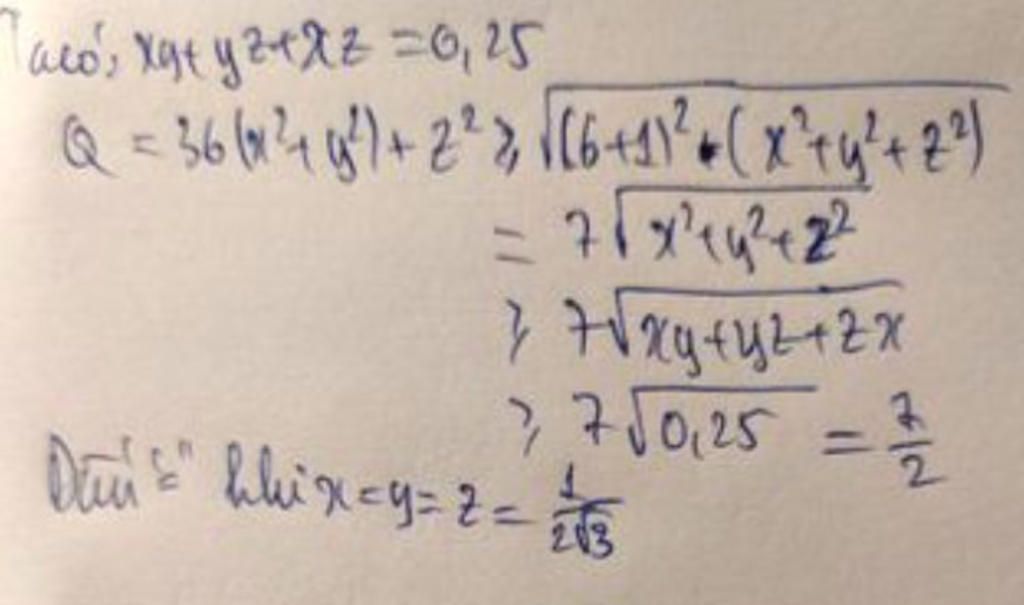 Ta có, xy + yz + xz = 0,25
Q = 36(x² + y²) + z² ≥ √((6+1)² · (x² + y² + z²))
= 7√(x² + y² + z²)
≥ 7√(xy + yz + zx)
≥ 7√0,25 = 7/2
Dấu "=" khi x = y = z = 1/(2√3)